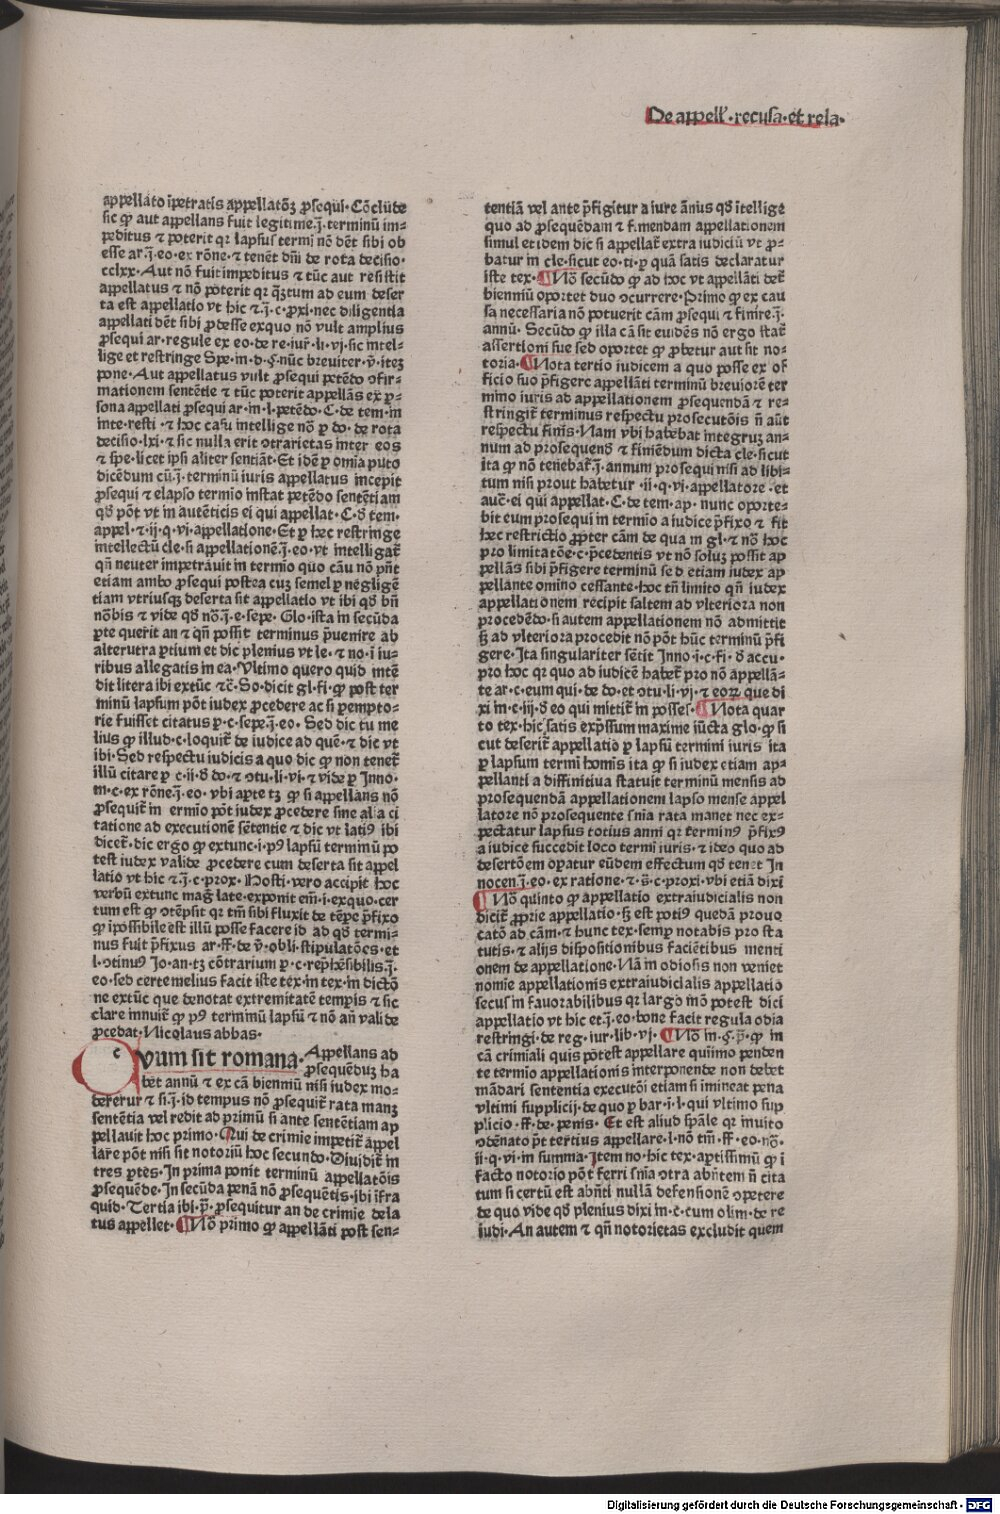 De appell̄·recusa·et rela·
appellato īpetratis appellatōꝫ ꝓsequi·Cōclude
sic ꝙ aut appellans fuit legitime.ị̄.terminū im⸗
peditus ⁊ poterit qr lapsus termī nō dēt sibi ob
esse ar.ị̄.eo·ex rōne·⁊ tenēt dn̄i de rota decisio·
cclxx·Aut nō fuit impeditus ⁊ tūc aut resistit
appellatus ⁊ nō poterit qr qꝫtum ad eum deser
ta est appellatio vt hic ⁊.ị̄.c·ꝓxi·nec diligentia
appellati dēt sibi ꝓdesse exquo nō vult amplius
ꝓsequi ar·regule ex eo·de re·iur̄·li·vj·sic intel⸗
lige et restringe Spe·in·d·ꝯ·nūc breviter·ꝟ·iteꝫ
pone·Aut appellatus vult ꝓsequi petēdo ꝯfir⸗
mationem sentētie ⁊ tūc poterit appellās ex ꝑ⸗
sona appellati ꝓsequi ar·in·l·petēdo·C·de tem·in
inte·resti·⁊ hoc casu intellige nō ꝑ do·de rota
decisio·lxi·⁊ sic nulla erit ꝯtrarietas inter eos
⁊ spe·licet ipsi aliter sentiāt·Et idē ꝑ omia puto
dicēdum cū.ị̄.terminū iuris appellatus incepit
ꝓsequi ⁊ elapso termio instat petēdo sentētiam
qd̄ pōt vt in autēticis ei qui appellat·C·d̄ tem·
appel·⁊·ij·q·vi·appellatione·Et ꝑ hec restringe
intellectū cle·si appellationē.ị̄.eo·vt intelligat̄
qn̄ neuter impetrauit in termio quo cāu nō pn̄t
etiam ambo ꝓsequi postea cuꝫ semel ꝑ negligē
tiam vtriusqꝫ deserta sit appellatio vt ibi qd̄ bn̄
nōbis ⁊ vide qd̄ nō.ị̄.e·sepe·Glo·ista in secūda
ꝑte querit an ⁊ qn̄ possit terminus ꝑuenire ab
alterutra ꝑtium et dic plenius vt le·⁊ no·ī iu⸗
ribus allegatis in ea·Vltimo quero quid intē
dit litera ibi extūc ⁊c̄·So·dicit gl·fi·ꝙ post ter
minū lapsum pōt iudex ꝓcedere ac si ꝑempto⸗
rie fuisset citatus ꝑ·c·sepe.ị̄.eo·Sed dic tu me
lius ꝙ illud·c·loquit̄ de iudice ad quē·⁊ dic vt
ibi·Sed respectu iudicis a quo dic ꝙ non tenet̄
illū citare ꝑ c·ii·d̄ do·⁊ ꝯtu·li·vi·⁊ vide ꝑ Inno·
in·c·ex rōne.ị̄.eo·vbi aꝑte tꝫ ꝙ si appellans nō
ꝓsequit̄ in ermio pōt iudex ꝓcedere sine alia ci
tatione ad executionē sētentie ⁊ dic vt latiꝰ ibi
diceꝉ·dic ergo ꝙ extunc·i·pꝰ lapsū terminū po
test iudex valide ꝓcedere cum deserta sit appel
latio vt hic ⁊.ị̄.c·prox·Hosti·vero accipit hoc
verbū extunc maḡ late·exponit em̄·i·exquo·cer
tum est ꝙ ꝯtēpsit qr tm̄ sibi fluxit de tēpe p̄fixo
ꝙ ipossibile est illū posse facere id ad qd̄ termi⸗
nus fuit p̄fixus ar·ff·de ꝟ·obli·stipulatōes·et
l·ꝯtinuꝰ Jo·an·tꝫ cōtrarium ꝑ·c·rep̄hēsibilis.ị̄.
eo·sed certe melius facit iste tex·in tex·in dictō
ne extūc que denotat extremitatē tempis ⁊ sic
clare innuit̄ ꝙ pꝰ terminū lapsū ⁊ nō an̄ valide
ꝓcedat·Nicolaus abbas·
c
vum sit romana·Appellans ad
ꝓsequēduꝫ ha
bet annū ⁊ ex cā bienniū nisi iudex mo⸗
dererur ⁊ si.ị̄.id tempus nō ꝓsequit̄ rata manꝫ
sentētia vel redit ad primū si ante sentētiam ap
pellauit hoc primo·Qui de crimie impetit̄ appel
lare pōt nisi sit notoriū hoc secundo·Diuidit̄ in
tres ꝑtes·In prima ponit terminū appellatōis
ꝓsequēde·In secūda penā nō ꝓsequētis·ibi īfra
quid·Tertia ibi·ꝑ̄·ꝓsequitur an de crimie dela
tus appellet·¶Nō primo ꝙ appellāti post sen⸗
tentiā vel ante p̄figitur a iure ānius qd̄ ītellige
quo ad ꝓsequēdam ⁊ f.mendam appellationem
simul et idem dic si appellat̄ extra iudiciū vt ꝓ⸗
batur in cle·sicut eo·ti·ꝑ quā satis declaratur
iste tex·¶Nō secūdo ꝙ ad hoc vt appellāti det̄
bienniū oportet duo ꝯcurrere·Primo ꝙ ex cau
sa necessaria nō potuerit cām ꝓsequi ⁊ finire.ị̄.
annū·Secūdo ꝙ illa cā sit euidēs nō ergo stat̄
assertioni sue sed oportet ꝙ ꝓbetur aut sit no⸗
toria·¶Nota tertio iudicem a quo posse ex of
ficio suo p̄figere appellāti terminū breuiorē ter
mino iuris ad appellationem ꝓsequendā ⁊ re⸗
stringit̄ terminus respectu prosecutōis n̄ aūt
respectu finis·Nam vbi habebat integruꝫ an⸗
num ad prosequend̄ ⁊ finiēdum dicta cle·sicut
ita ꝙ nō tenebat̄.ị̄.annum prosequi nisi ad libi⸗
tum nisi prout habetur·ii·q·vi·appellatore·et
autē·ei qui appellat·C·de tem·ap·nunc oporte⸗
bit eum prosequi in termio a iudice p̄fixo ⁊ fit
hec restrictio ꝓpter cām de qua in gl·⁊ nō hoc
pro limitatōe·c·p̄cedentis vt nō soluꝫ possit ap
pellās sibi p̄figere terminū sed etiam iudex ap
pellante omino cessante·hoc tn̄ limito qn̄ iudex
appellationem recipit saltem ad vlteriora non
procedēdo·si autem appellationem nō admittit
sꝫ ad vlteriora procedit nō pōt hūc terminū p̄fi
gere·Ita singulariter sētit Inno·i·c·fi·d̄ accu·
pro hoc qr quo ad iudicē habet̄ pro nō appellā⸗
te ar·c·eum qui·de do·et ꝯtu·li·vj·⁊ eoꝝ que di
xi in·c·iij·d̄ eo qui mittit̄ in posses·¶Nota quar
to tex·hic satis exp̄ssum maxime iūcta glo·ꝙ si
cut deserit̄ appellatio ꝑ lapsū termini iuris ita
ꝑ lapsum termī homīs ita ꝙ si iudex etiam ap⸗
pellanti a diffinitiua statuit terminū mensis ad
prosequendā appellationem lapso mense appel
latore nō prosequente sn̄ia rata manet nec ex⸗
pectatur lapsus totius anni qr terminꝰ p̄fixꝰ
a iudice succedit loco termī iuris·⁊ ideo quo ad
desertōem oꝑatur eūdem effectum qd̄ tenet In
nocen.ị̄.eo·ex ratione·⁊·s̄·c·proxi·vbi etiā dixi
¶Nō quinto ꝙ appellatio extraiudicialis non
dicit̄ ꝓprie appellatio·sꝫ est potiꝰ quedā prouo
catō ad cām·⁊ hunc tex·semꝑ notabis pro sta
tutis·⁊ alijs dispositionibus faciētibus menti
onem de appellatione·Nā in odiosis non veniet
nomie appellationis extraiudicialis appellatio
secus in fauorabilibus qr largo mō potest dici
appellatio vt hic et.ị̄.eo·bone facit regula odia
restringi·de reg·iur·lib·vj·¶Nō in·ꝯ·ꝑ̄·ꝙ in
cā crimīali quis pōtest appellare quiimo penden
te termio appellationis interponende non debet
mādari sententia executōi etiam si imineat pena
vltimi supplicij·de quo ꝑ bar·ī·l·qui vltimo sup
plicio·ff·de·penis·Et est aliud sp̄ale qr muito
ꝯdēnato p̄t tertius appellare·l·nō tm̄·ff·eo·nō·
ii·q·vi·in summa·Item no·hic tex·aptissimū ꝙ ī
facto notorio pōt ferri sn̄ia ꝯtra abn̄tem n̄ cita
tum si certū est abn̄ti nullā defensionē ꝯpetere
de quo vide qd̄ plenius dixi in·c·cum olim·de re
iudi·An autem ⁊ qn̄ notorietas excludit quem
Digitalisierung gefördert durch die Deutsche Forschungsgemeinschaft - DFG